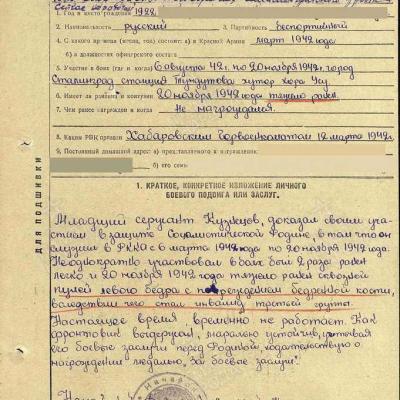 1. Год и место рождения
2. Национальность русский 3. Партийность беспартийный
4. С какого времени состоит в Красной Армии март 1942 года
б) а должностях офицерского состава
5. Участие в боях (где и когда) 6 августа 42 г. по 20 ноября 1942, город
Сталинград станция Тундутова хутор хара Усу
6. Имеет ли ранения и контузии 20 ноября 1942 года тяжело ранен
7. Чем ранее награжден и когда Не награждался.
8. Каким РВК призван Хабаровским Горвоенкоматом 12 марта 1942 г.
9. Постоянный домашний адрес: а) представляемого к награждению
б) его семьи
ДЛЯ ПОДШИВКИ
1. КРАТКОЕ, КОНКРЕТНОЕ ИЗЛОЖЕНИЕ ЛИЧНОГО
БОЕВОГО ПОДВИГА ИЛИ ЗАСЛУГ.
Младший сержант Кузнецов, доказал своим уча-
стием в защите Социалистической Родине, в том что он
служил в РККА с 6 марта 1942 года по 20 ноября 1942 года.
Неоднократно участвовал в боях был 2 раза ранен
легко и 20 ноября 1942 года тяжело ранен сквозной
пулей левого бедра с повреждением бедренной кости,
вследствии чего стал инвалид третьей группы.
Настоящее время временно не работает. Как
фронтовик выдержан, морально устойчив, учитывая
его боевые заслуги перед Родиной, ходатайствую о
награждении медалью, "За боевые заслуги".